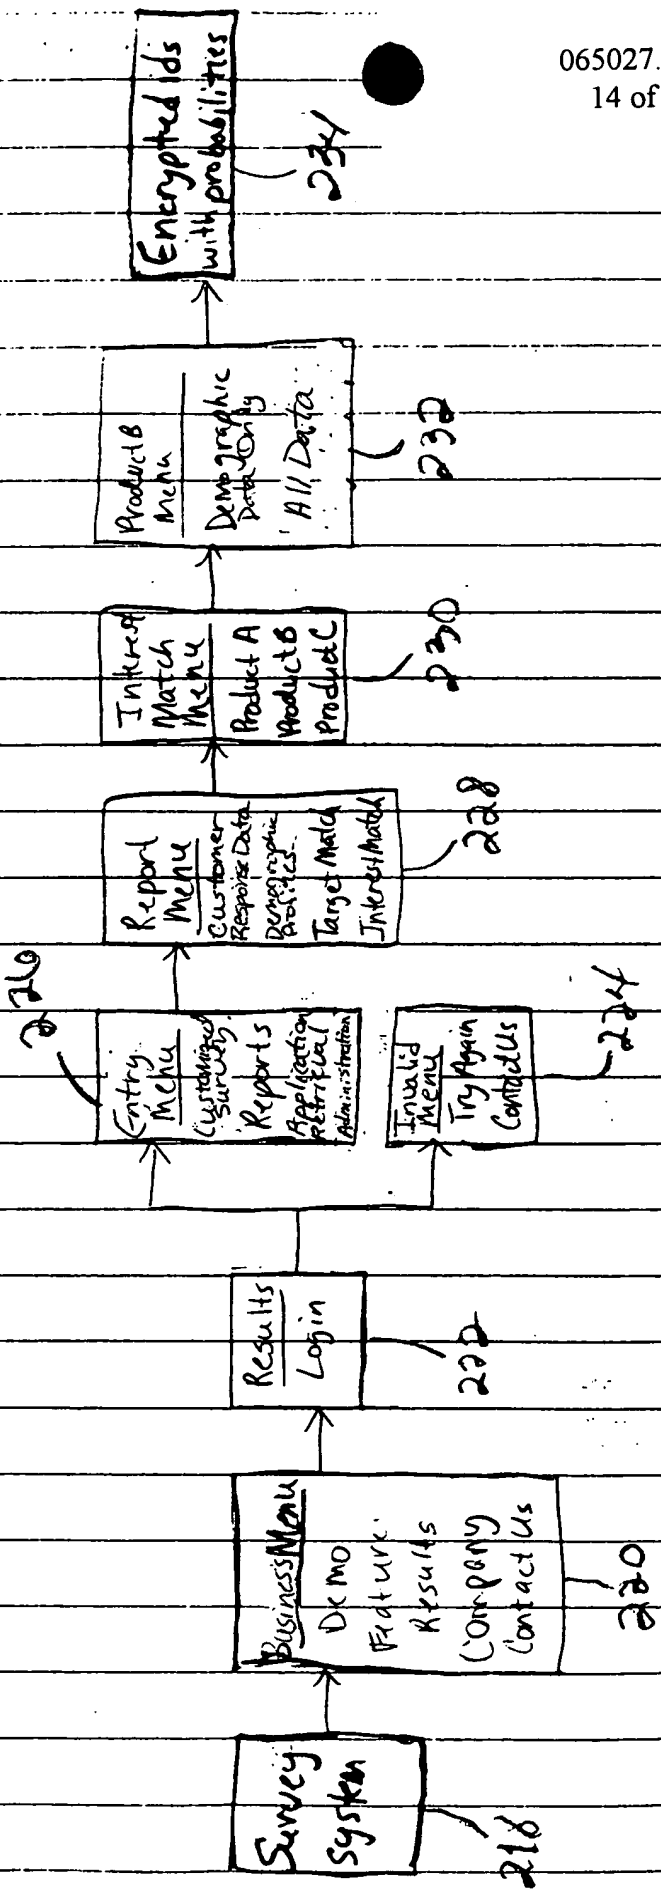 065027.
14 of
Survey
System
218
Business Menu
Demo
Feature
Results
Company
Contact Us
220
Results
Login
222
Entry
Menu
Customized
Survey
Reports
Application
Retrieval
Administration
226
Invalid
Menu
Try Again
Contact Us
224
Report
Menu
Customer
Response Data
Demographic
Profiles
Target Match
Interest Match
228
Interest
Match
Menu
Product A
Product B
Product C
230
Product B
Menu
Demographic
Data Only
All Data
232
Encrypted Ids
with probabilities
234